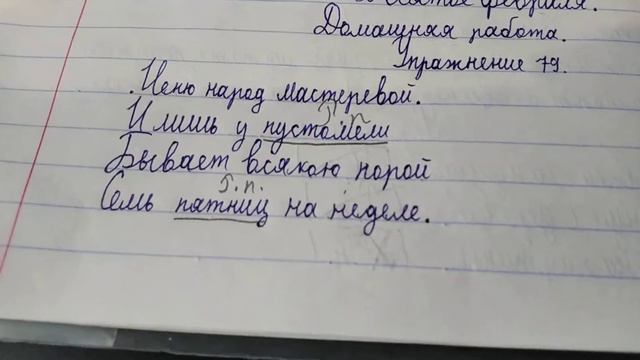 февраля.
Домашняя работа.
Упражнение 79.
Ценю народ мастеревой.
И лишь у пустомели
Р. п.
Бывает всякою порой
Семь пятниц на неделе.
Р. п.